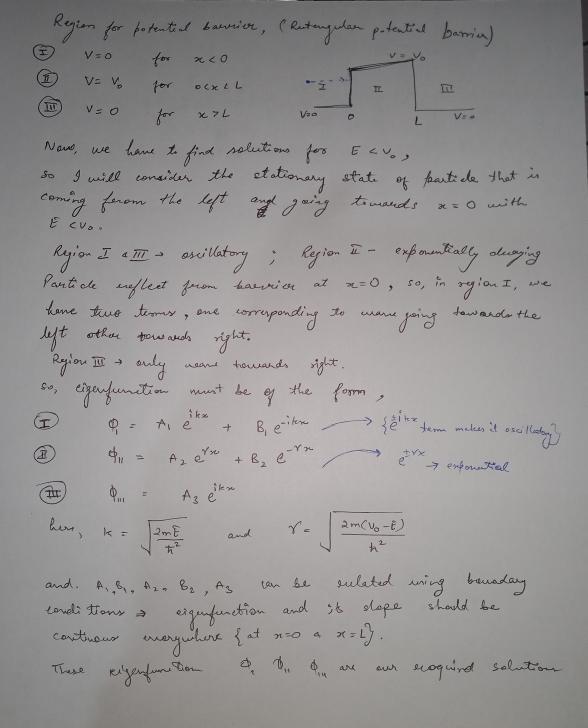 Region for potential barrier, (Rectangular potential barrier)
I V=0 for x<0
II V= V₀ for 0<x<L
III V=0 for x>L
V= V₀
I II III
V=0 0 L V=0
Now, we have to find solutions for E < V₀,
so I will consider the stationary state of particle that is
coming from the left and going towards x=0 with
E < V₀.
Region I & III → oscillatory ; Region II - exponentially decaying
Particle reflect from barrier at x=0, so, in region I, we
have two terms, one corresponding to wave going towards the
left other towards right.
Region III → only wave towards right.
so, eigenfunction must be of the form,
I ϕ_I = A₁ e^{ikx} + B₁ e^{-ikx} → {e^{±ikx} term makes it oscillatory}
II ϕ_II = A₂ e^{γx} + B₂ e^{-γx} → e^{±γx} → exponential
III ϕ_III = A₃ e^{ikx}
here, k = √(2mE/ħ²) and γ = √(2m(V₀-E)/ħ²)
and. A₁, B₁, A₂, B₂, A₃ can be related using boundary
conditions → eigenfunction and its slope should be
continuous everywhere {at x=0 & x=L}.
These eigenfunction ϕ_I ϕ_II ϕ_III are our required solution